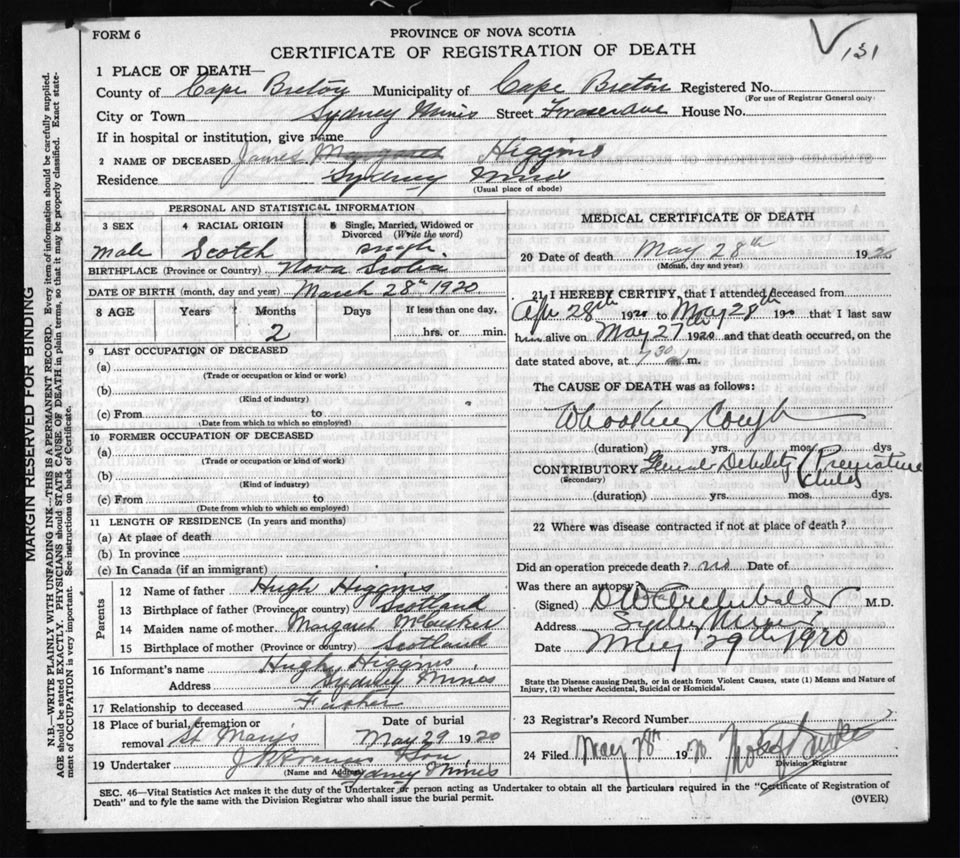 FORM 6
PROVINCE OF NOVA SCOTIA
CERTIFICATE OF REGISTRATION OF DEATH
131
1 PLACE OF DEATH—
County of Cape Breton Municipality of Cape Breton Registered No.
(For use of Registrar General only)
City or Town Sydney Mines Street Fraser Ave House No.
If in hospital or institution, give name
2 NAME OF DECEASED James Margaret Higgins
Residence Sydney Mines
(Usual place of abode)
PERSONAL AND STATISTICAL INFORMATION
3 SEX 4 RACIAL ORIGIN 5 Single, Married, Widowed or Divorced (Write the word)
Male Scotch Single
BIRTHPLACE (Province or Country) Nova Scotia
DATE OF BIRTH (month, day and year) March 28th 1920
8 AGE Years Months Days If less than one day,
2 hrs. or min.
9 LAST OCCUPATION OF DECEASED
(a)
(Trade or occupation or kind or work)
(b)
(Kind of industry)
(c) From to
(Date from which to which so employed)
10 FORMER OCCUPATION OF DECEASED
(a)
(Trade or occupation or kind of work)
(b)
(Kind of industry)
(c) From to
(Date from which to which so employed)
11 LENGTH OF RESIDENCE (In years and months)
(a) At plase of death
(b) In province
(c) In Canada (if an immigrant)
Parents
12 Name of father Hugh Higgins
13 Birthplace of father (Province or country) Scotland
14 Maiden name of mother Margaret
15 Birthplace of mother (Province or country) Scotland
16 Informant's name Hugh Higgins
Address Sydney Mines
17 Relationship to deceased Father
18 Place of burial, cremation or removal St Mary's Date of burial May 29 1920
19 Undertaker J Francis Son
(Name and Address) Sydney Mines
MEDICAL CERTIFICATE OF DEATH
20 Date of death May 28th 1920
(Month, day and year)
21 I HEREBY CERTIFY, that I attended deceased from
Apr 28th 1920 to May 28th 1920 that I last saw
him alive on May 27th 1920 and that death occurred, on the
date stated above, at 7 30 m.
The CAUSE OF DEATH was as follows:
Whooping Cough
(duration) yrs. mos. dys
CONTRIBUTORY General Debility (Premature
(Secondary) child)
(duration) yrs. mos. dys.
22 Where was disease contracted if not at place of death?
Did an operation precede death? no Date of
Was there an autopsy?
(Signed) D W Archibald M.D.
Address Sydney Mines
Date May 29th 1920
State the Disease causing Death, or in death from Violent Causes, state (1) Means and Nature of
Injury, (2) whether Accidental, Suicidal or Homicidal.
23 Registrar's Record Number
24 Filed May 28th 1920
Division Registrar
SEC. 46—Vital Statistics Act makes it the duty of the Undertaker or person acting as Undertaker to obtain all the particulars required in the "Certificate of Registration of
Death" and to fyle the same with the Division Registrar who shall issue the burial permit.
(OVER)
MARGIN RESERVED FOR BINDING
N.B.—WRITE PLAINLY WITH UNFADING INK—THIS IS A PERMANENT RECORD. Every item of information should be carefully supplied.
AGE should be stated EXACTLY. PHYSICIANS should STATE CAUSE OF DEATH in plain terms, so that it may be properly classified. Exact state-
ment of OCCUPATION is very important. See instructions on back of Certificate.